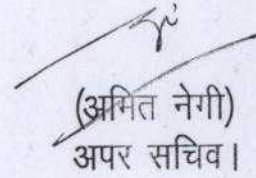 (अमित नेगी)
अपर सचिव।